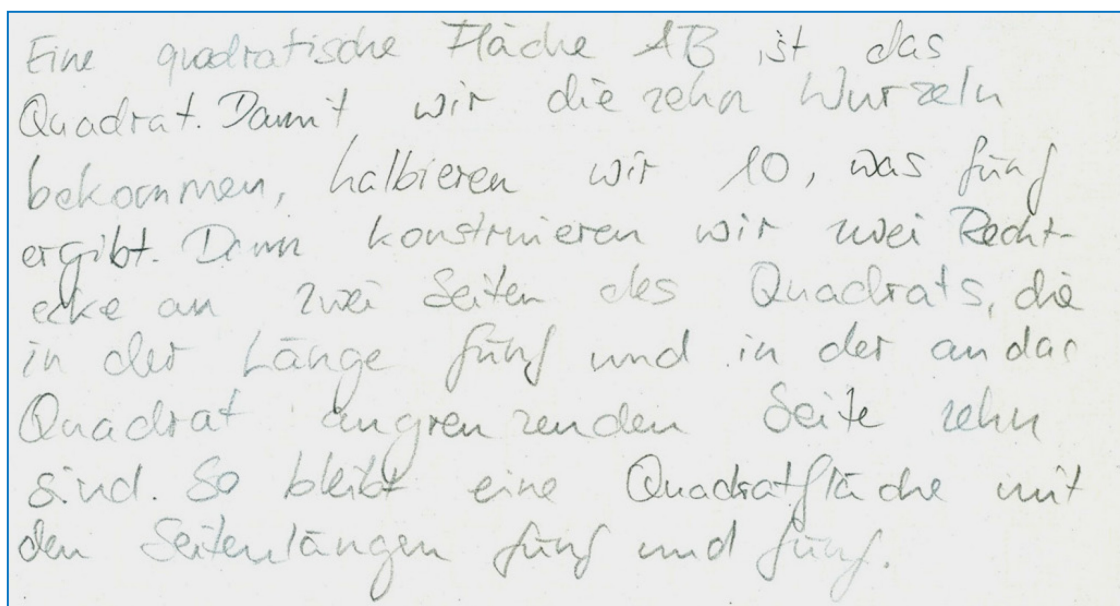 Eine quadratische Fläche AB ist das
Quadrat. Damit wir die zehn Wurzeln
bekommen, halbieren wir 10, was fünf
ergibt. Dann konstruieren wir zwei Recht-
ecke an zwei Seiten des Quadrats, die
in der Länge fünf und in der an das
Quadrat angrenzenden Seite zehn
sind. So bleibt eine Quadratfläche mit
den Seitenlängen fünf und fünf.